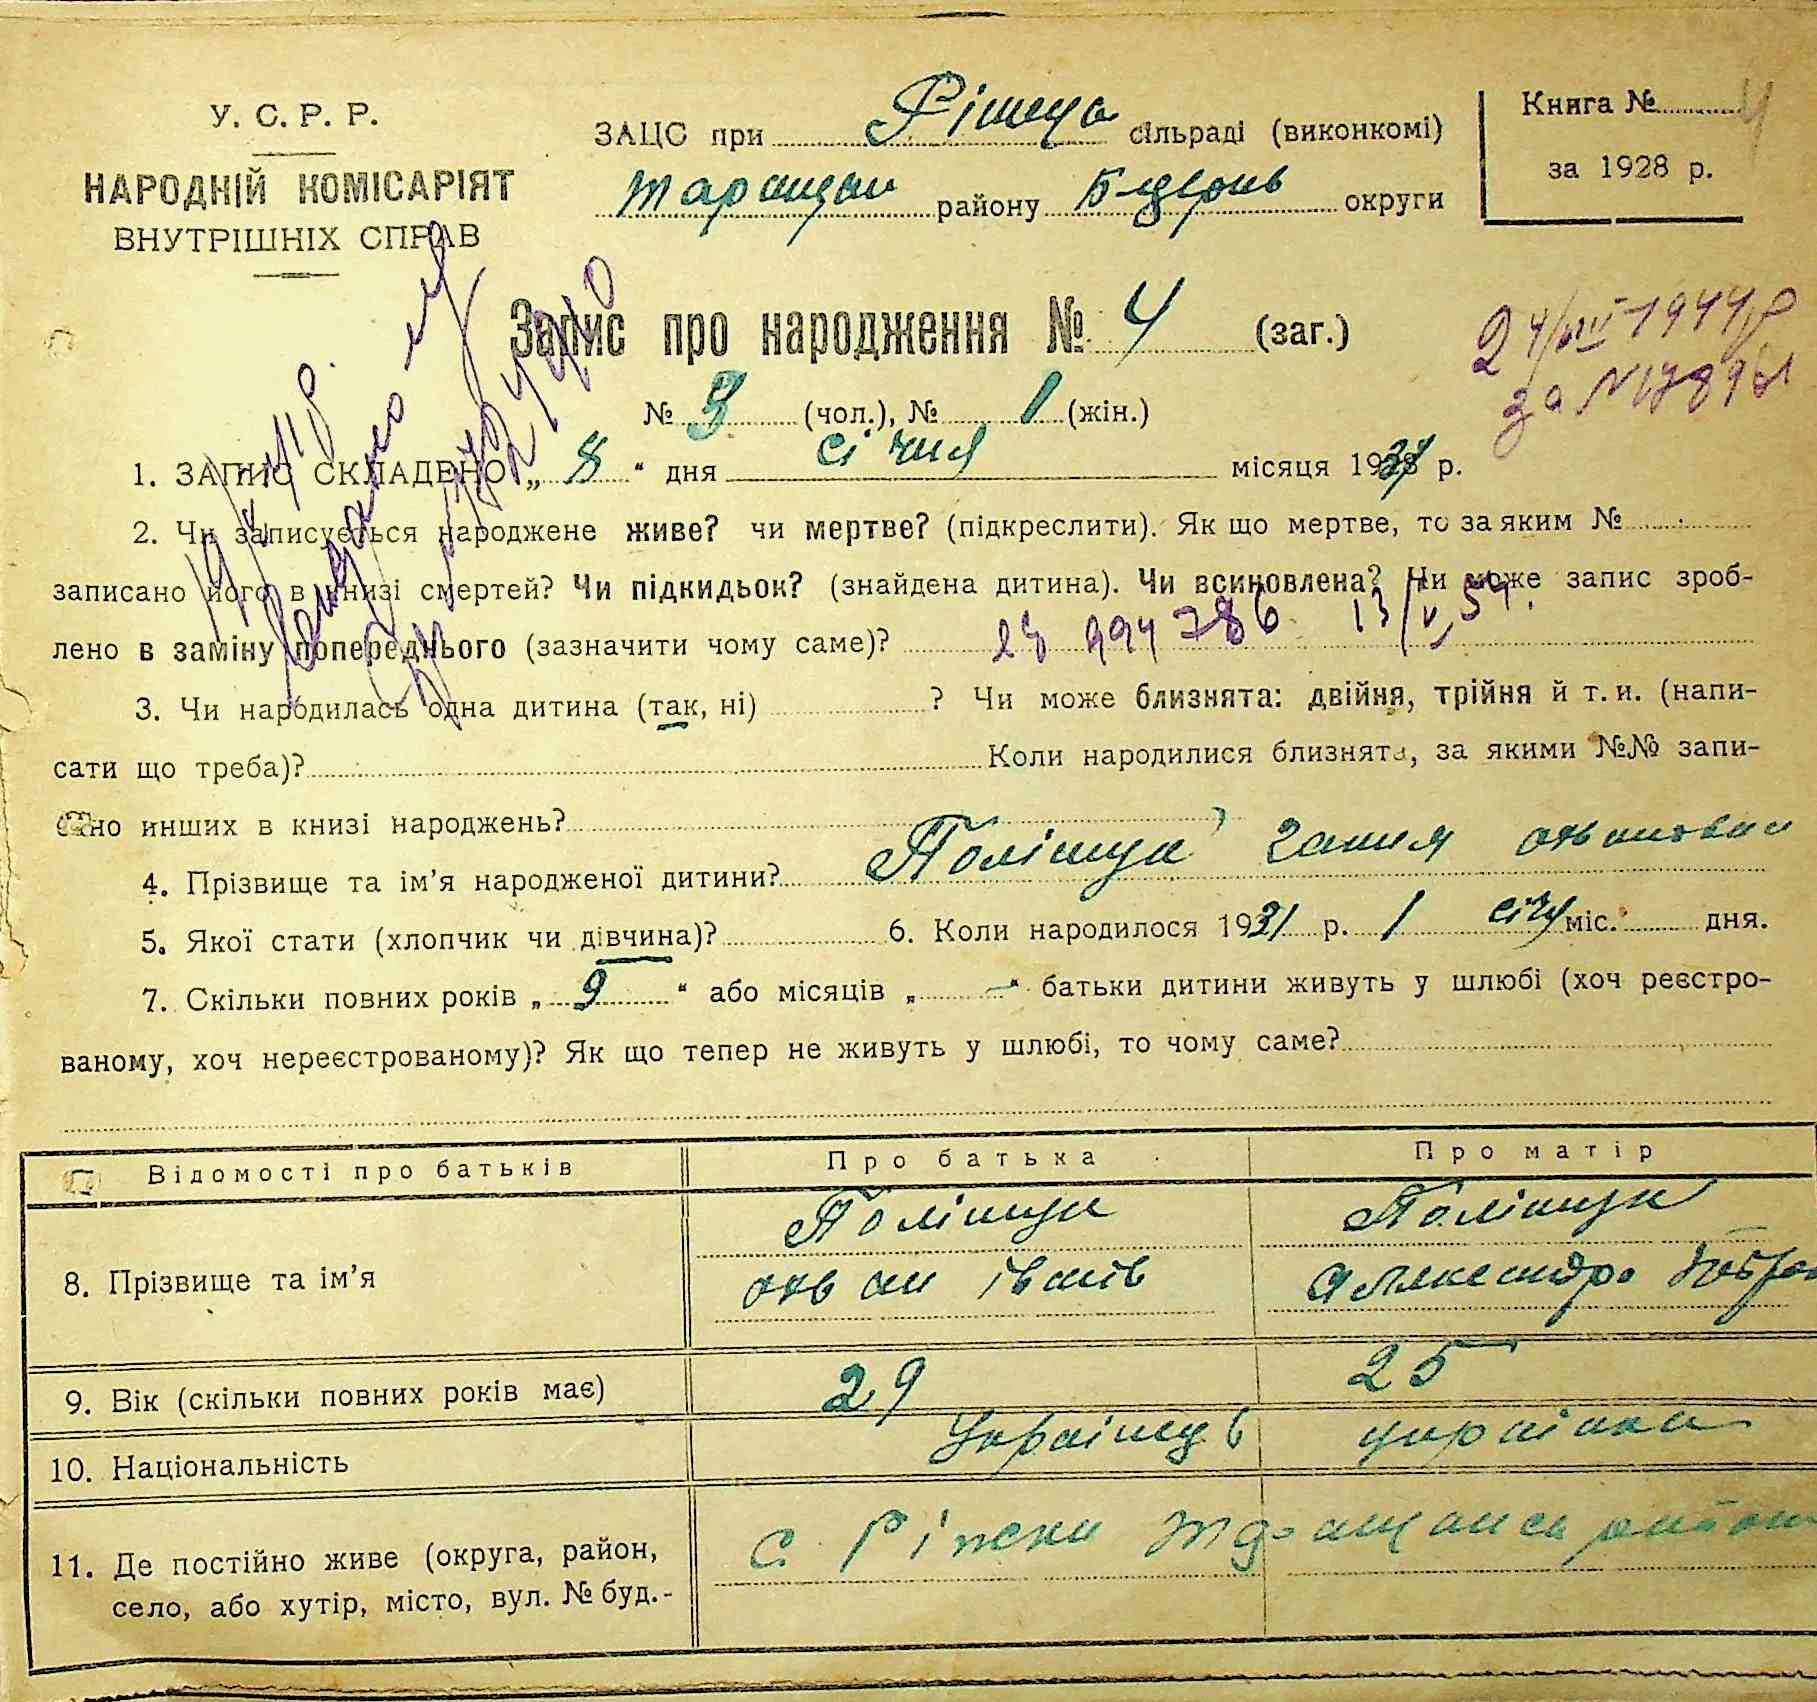 У. С. Р. Р.
НАРОДНІЙ КОМІСАРІЯТ
ВНУТРІШНІХ СПРАВ
ЗАЦС при сільраді (виконкомі)
Таращан району Б-Церків округи
Книга № 4
за 1928 р.
Запис про народження № 4 (заг.)
№ 3 (чол.), № 1 (жін.)
24/VIII 1944р
за №
1. ЗАПИС СКЛАДЕНО „ 8 “ дня січня місяця 1931 р.
2. Чи записується народжене живе? чи мертве? (підкреслити). Як що мертве, то за яким №
записано його в книзі смертей? Чи підкидьок? (знайдена дитина). Чи всиновлена? Чи може запис зроб-
лено в заміну попереднього (зазначити чому саме)? 994786 13/V 54.
3. Чи народилась одна дитина (так, ні) ? Чи може близнята: двійня, трійня й т. и. (напи-
сати що треба)? Коли народилися близнята, за якими №№ запи-
сано инших в книзі народжень?
4. Прізвище та ім’я народженої дитини? Поліщук Гання
5. Якої стати (хлопчик чи дівчина)? 6. Коли народилося 1931 р. 1 січ міс. дня.
7. Скільки повних років „ 9 “ або місяців „ — “ батьки дитини живуть у шлюбі (хоч реєстро-
ваному, хоч нереєстрованому)? Як що тепер не живуть у шлюбі, то чому саме?
Відомості про батьків Про батька Про матір
8. Прізвище та ім’я Поліщук Поліщук
Іванів Александра
9. Вік (скільки повних років має) 29 25
10. Національність Українець українка
11. Де постійно живе (округа, район, с Ріжки Таращанск район
село, або хутір, місто, вул. № буд.-